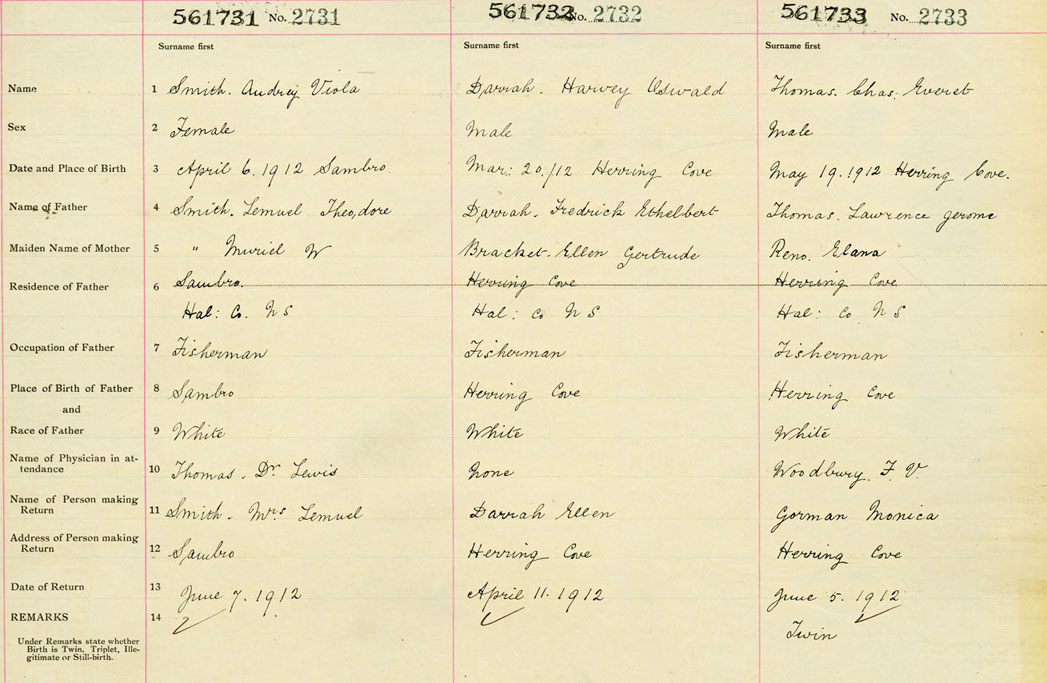 561731 No. 2731 561732 No. 2732 561733 No. 2733
Surname first Surname first Surname first
Name 1 Smith. Audrey Viola Darrah. Harvey Oswald Thomas. Chas. Everet
Sex 2 Female Male Male
Date and Place of Birth 3 April 6. 1912 Sambro. Mar: 20./12 Herring Cove May 19. 1912 Herring Cove.
Name of Father 4 Smith. Lemuel Theodore Darrah. Fredrick Ethelbert Thomas. Lawrence Jerome
Maiden Name of Mother 5 " Muriel W Bracket. Ellen Gertrude Reno. Elana
Residence of Father 6 Sambro. Herring Cove Herring Cove
Hal: Co. N S Hal: Co N S Hal: Co N S
Occupation of Father 7 Fisherman Fisherman Fisherman
Place of Birth of Father 8 Sambro Herring Cove Herring Cove
and
Race of Father 9 White White White
Name of Physician in at-
tendance 10 Thomas. Dr. Lewis None Woodbury. F. V.
Name of Person making
Return 11 Smith. Mrs Lemuel Darrah Ellen Gorman Monica
Address of Person making
Return 12 Sambro Herring Cove Herring Cove
Date of Return 13 June 7. 1912 April 11. 1912 June 5. 1912
REMARKS 14
Twin
Under Remarks state whether
Birth is Twin, Triplet, Ille-
gitimate or Still-birth.